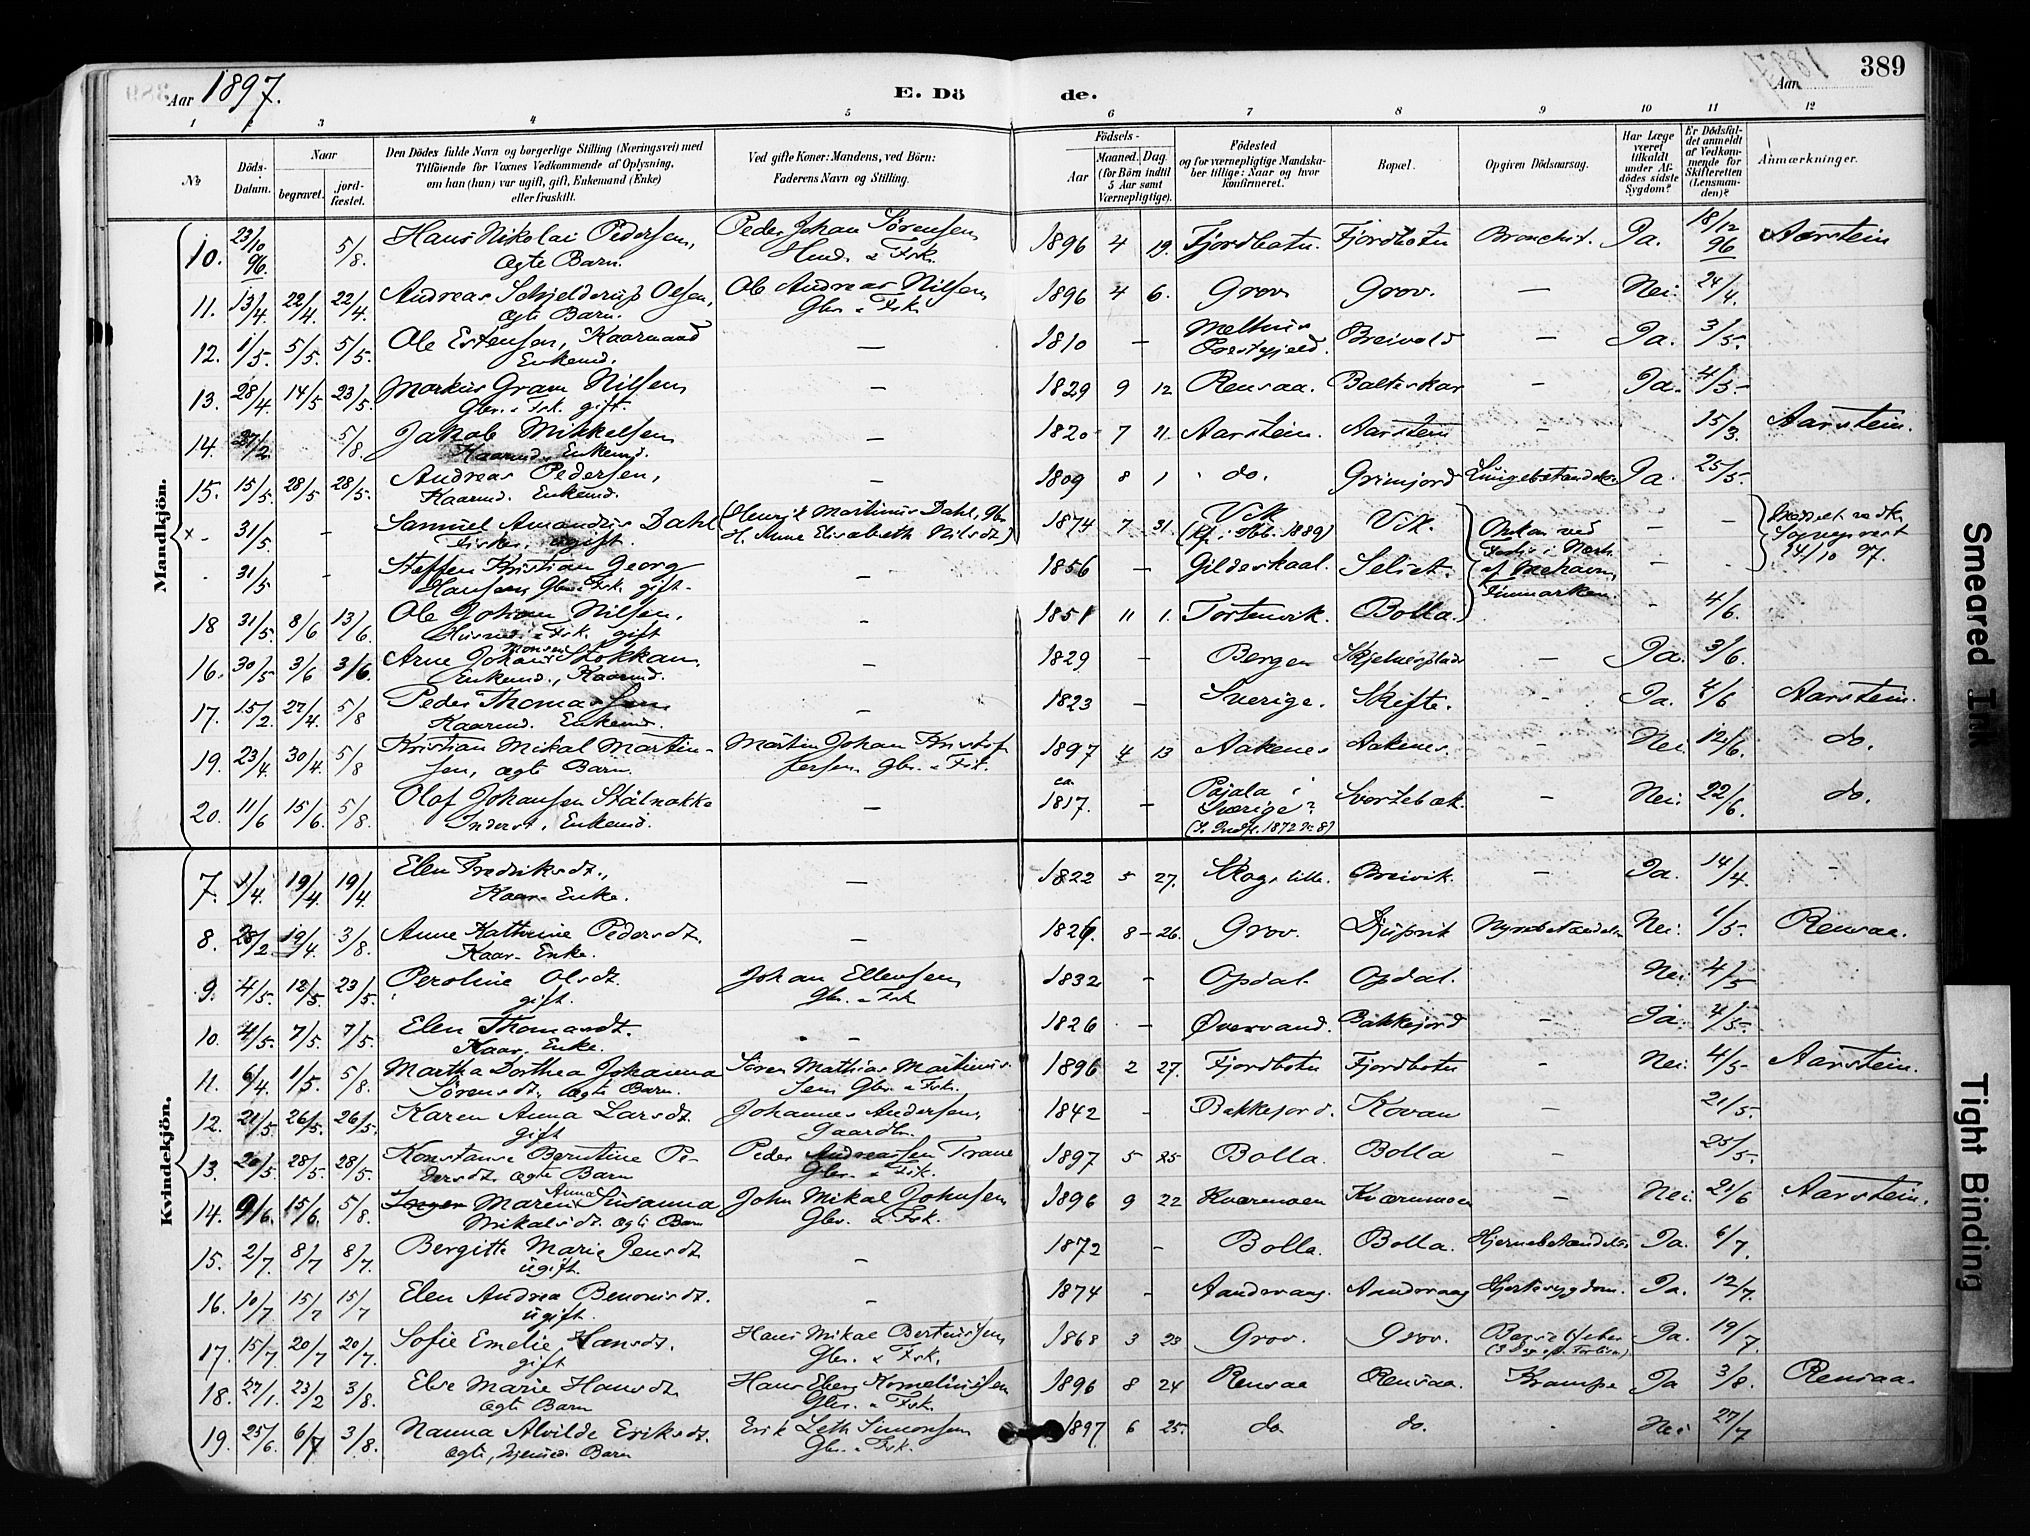 Aar 1897. E. Dö de. Aar 389
1 2 3 4 5 6 7 8 9 10 11 12
No Döds-Datum. Naar begravet. jord-fæstet. Den Dödes fulde Navn og borgerlige Stilling (Næringsvei) med Tilföiende for Voxnes Vedkommende af Oplysning, om han (hun) var ugift, gift, Enkemand (Enke) eller fraskilt. Ved gifte Koner: Mandens, ved Börn: Faderens Navn og Stilling. Födsels- Aar Maaned. Dag. (for Börn indtil 5 Aar samt Værnepligtige). Födested og for værnepligtige Mandskaber tillige: Naar og hvor konfirmeret. Bopæl. Opgiven Dödsaarsag. Har Læge været tilkaldt under Afdödes sidste Sygdom? Er Dödsfaldet anmeldt af Vedkommende for Skifteretten (Lensmanden)? Anmærkninger.
Mandkjön.
10. 23/10 96. 5/8. Hans Nikolai Pedersen, ægte Barn. Peder Johan Sørensen Husm. & Fsk. 1896 4 19. Fjordbotn. Fjordbotn Bronchit. Ja. 18/12 96 Aarstein
11. 13/4. 22/4. 22/4. Andreas Schjelderup Olsen, ægte Barn. Ole Andreas Nilsen Gbr. & Fsk. 1896 4 6. Grov Grov. — Nei. 24/4.
12. 1/5. 5/5. 5/5. Ole Estensen, Kaarmand Enkemd. — 1810 — Melhus Breivold — Ja. 3/5.
13. 28/4. 14/5 23/5. Markus Gram Nilsen Gbr. & Fsk. gift. — 1829 9 12 Rensaa. Balteskar — Ja. 4/5
14 27/2. 5/8. Jakob Mikkelsen Kaarmd. Enkemd. — 1820 7 11. Aarstein. Aarstein — 15/3. Aarstein.
15. 15/5. 28/5 28/5. Andreas Pedersen, Kaarmd. Enkemd. — 1809 8 1 do. Grimjord Lungebetændelse Ja. 25/5.
x - 31/5. — Samuel Amandus Dahl Fisker, ugift. (Henrik Martinus Dahl, Gbr. H. Anne Elisabeth Nilsdt) 1874 7 31. Vik (kf. i Ibb. 1889) Vik. Omkom ved
31/5 — Steffen Kristian Georg Hansen, Gbr. & Fsk. gift. — 1856 — Gildeskaal. Selset. Finmarken. 14/10 97.
18 31/5. 8/6 13/6. Ole Johan Nilsen, Husmd. & Fsk. gift — 1851 11 1. Tortenvik. Bolla. - 4/6.
16. 30/5 3/6 3/6 Arne Johan Monsen Stokkan. Enkemd., Kaarmd. — 1829 — Bergen Skjelnesplads — Ja. 3/6.
17. 15/2. 27/4. 5/8 Peder Thomassen Kaarmd. Enkemd. — 1823 — Sverige. Skifte. - Ja. 4/6 Aarstein.
19. 23/4. 30/4. 5/8 Kristian Mikal Martinsen, ægte Barn. Martin Johan Kristofersen Gbr. & Fsk. 1897 4 13 Aakenes Aakenes. - Nei. 12/6. do.
20. 11/6 15/6. 5/8. Olof Johansen Stålnakke Inderst. Enkemd. — ca. 1817. — Pajala i Sverige? (S. Indfl. 1872 No 8) Svartebæk. — Nei. 22/6. do.
Kvindekjön.
7. 1/4. 19/4. 19/4 Elen Fredriksdt., Kaar-Enke. — 1822 5 27. Skog, lille. Breivik. — Ja. 14/4. -
8. 28/2 19/4. 3/8. Anne Kathrine Pedersdt. Kaar-Enke. — 1826. 8 26. Grov. Djupvik Nyrebetændelse Nei. 1/5. Rensaa.
9. 4/5. 12/5. 23/5. Peroline Olsdt. gift. Johan Ellevsen Gbr. & Fsk 1832 - Opdal. Opdal. Nei. 4/5
10. 4/5. 7/5. 7/5. Elen Thomasdt. Kaar. Enke. — 1826 - Øvervand. Bakkejord — Ja. 4/5.
11. 6/4. 1/5. 5/8. Martha Dorthea Johanna Sørensdt. ægte Barn. Søren Mathias Martinussen Gbr. & Fsk. 1896 2 27. Fjordbotn Fjordbotn - Nei. 4/5 Aarstein.
12. 21/5. 26/5. 26/5. Karen Anna Larsdt. gift Johannes Andersen, Gaardbr. 1842 - Bakkejord. Kovan — 21/5.
13. 26/5. 28/5. 28/5. Konstanse Berntine Pedersdt. ægte Barn Peder Andreassen Trane Gbr. & Fsk. 1897 5 25 Bolla. Bolla — 25/5.
14. 9/6. 15/6. 5/8. Maren Anna Susanna Mikalsdt. ægte Barn John Mikal Johnsen Gbr. & Fsk. 1896 9 22 Kværnmoen Kværnmoen — Nei. 21/6 Aarstein.
15. 2/7. 8/7 8/7. Bergitte Marie Jensdt ugift. — 1872 - Bolla. Bolla. Hjernebetændelse Ja. 6/7.
16. 10/7 15/7 15/7 Elen Andrea Benonisdt. ugift. — 1874 - Aandevaag. Aandevaag Hjertesygdom. Ja. 12/7.
17. 15/7 20/7 20/7. Sofie Emelie Hansdt. gift Hans Mikal Bertinussen Gbr. & Fsk. 1868 3 23 Grov. Grov. Barselfeber Ja. 19/7.
18. 27/1. 23/2 3/8. Else Marie Hansdt. ægte Barn Hans Eberg Korneliussen Gbr. & Fsk. 1896 8 24 Rensaa Rensaa. Krampe Ja 3/8. Rensaa.
19. 25/6. 6/7 3/8. Nanna Alvilde Eriksdt. ægte, hjemmed. Barn Erik Leth Simonsen Gbr. & Fsk. 1897. 6 25. do do. - Nei 27/7
Smeared Ink
Tight Binding